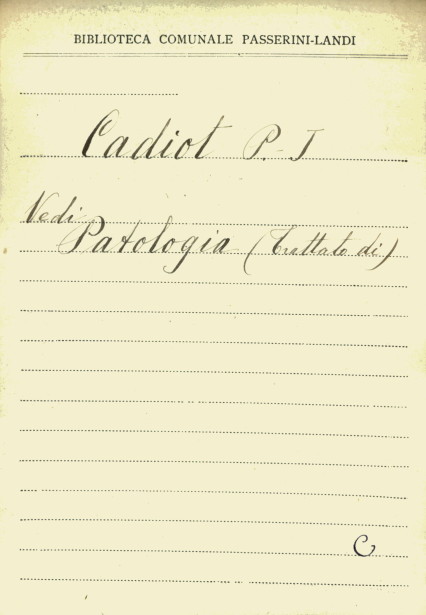 BIBLIOTECA COMUNALE PASSERINI-LANDI
Cadiot P.-J
Vedi
Patologia (Trattato di)
C